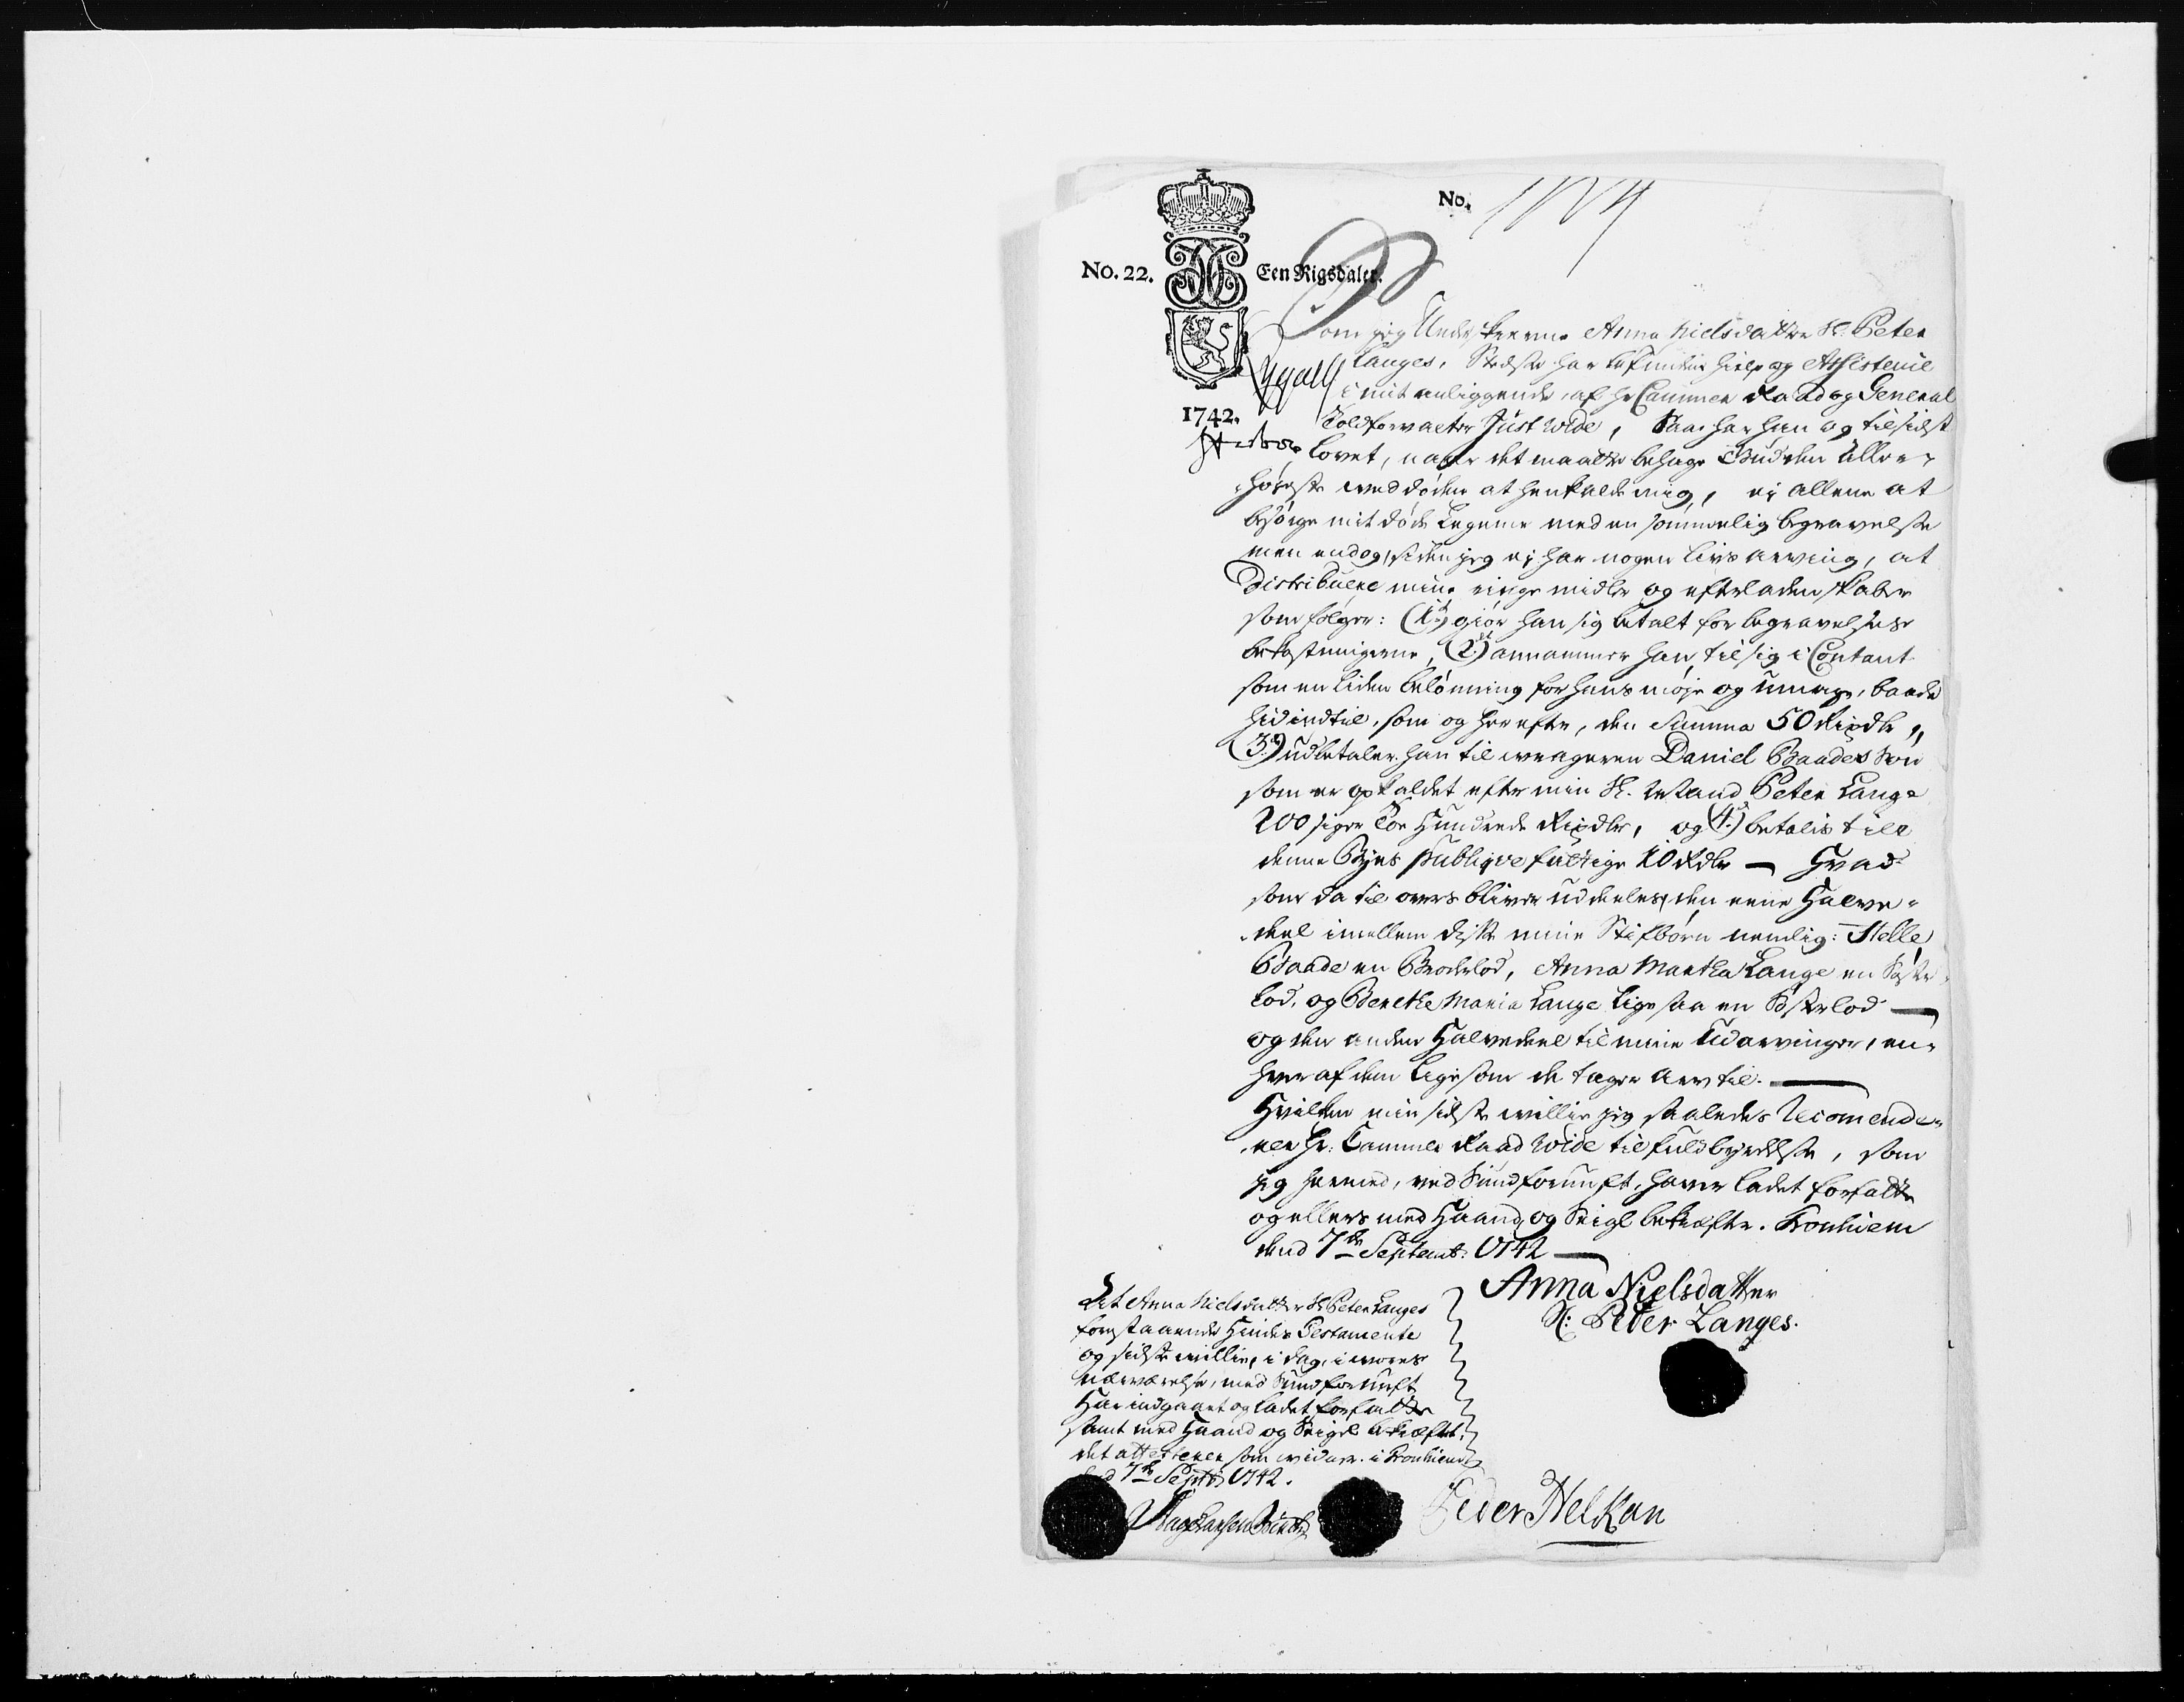 No. 1184
No. 22. Een Rigsdaler.
Som jeg Underskrevne Anna Nielsdatter Sl. Peter
Langes, Stedse har befunden hielp og Assistence
i mit anliggende, af Hr Cammer Raad og General
1742. Toldforvalter Just Wide, Saa har han og tilsidst
lovet, naar det maatte behage Gud den Aller-
høyeste ved døden at henkalde mig, ej allene at
besørge mit døde Legeme med en sømmelig begravelse
men endog, siden jeg ej har nogen livs arving, at
Distribuere mine ringe midler og efterladenskaber
som følger: (1.) giør han sig betalt for begravelses
bekostningerne, (2.) annammer han til sig i Contant
som en liden belønning for hans møje og umage, baade
hid indtil, som og herefter, den Summa 50 Rixdlr,,
(3.) udbetaler han til Daniel Baades Søn
som er opkaldet efter min Sl. Mand Peter Lange
200 siger Toe Hundrede Rixdlr, og (4.) betalis till
denne Byes publiqve fattige 10 Rdlr — Hvad
som da til overs bliver uddeeles, den eene Halve-
deel imellem disse mine Stifbørn nemlig: Melle
Baade en Broderlod, Anna Martha Lange en Søster
lod, og Berethe Maria Lange ligesaa en Søsterlod —
og den anden Halvedeel til mine Udarvinger, en-
hver af dem ligesom de tager Arv til. —
Hvilken min sidste villie jeg saaledes recomende-
rer Hr. Cammer Raad Wide til fuldbyrdelse, som
jeg hermed, ved Sund fornuft, haver ladet forfatte
og ellers med Haand og Seigl bekræfter. Tronhiem
dend 7de Septemb: 1742 —
Anna Nielsdatter
Sl: Peder Langes.
At Anna Nielsdatter Sl Peter Langes
forestaaende Hendes Testamente
og sidste villie, i dag, i vores
nærværelse, med Sund fornuft
Har indgaaet og ladet forfatte
samt med Haand og Seigl bekræftet,
det attesterer som vidner. i Tronhiem
7de Septb 1742.
Peder Helkan